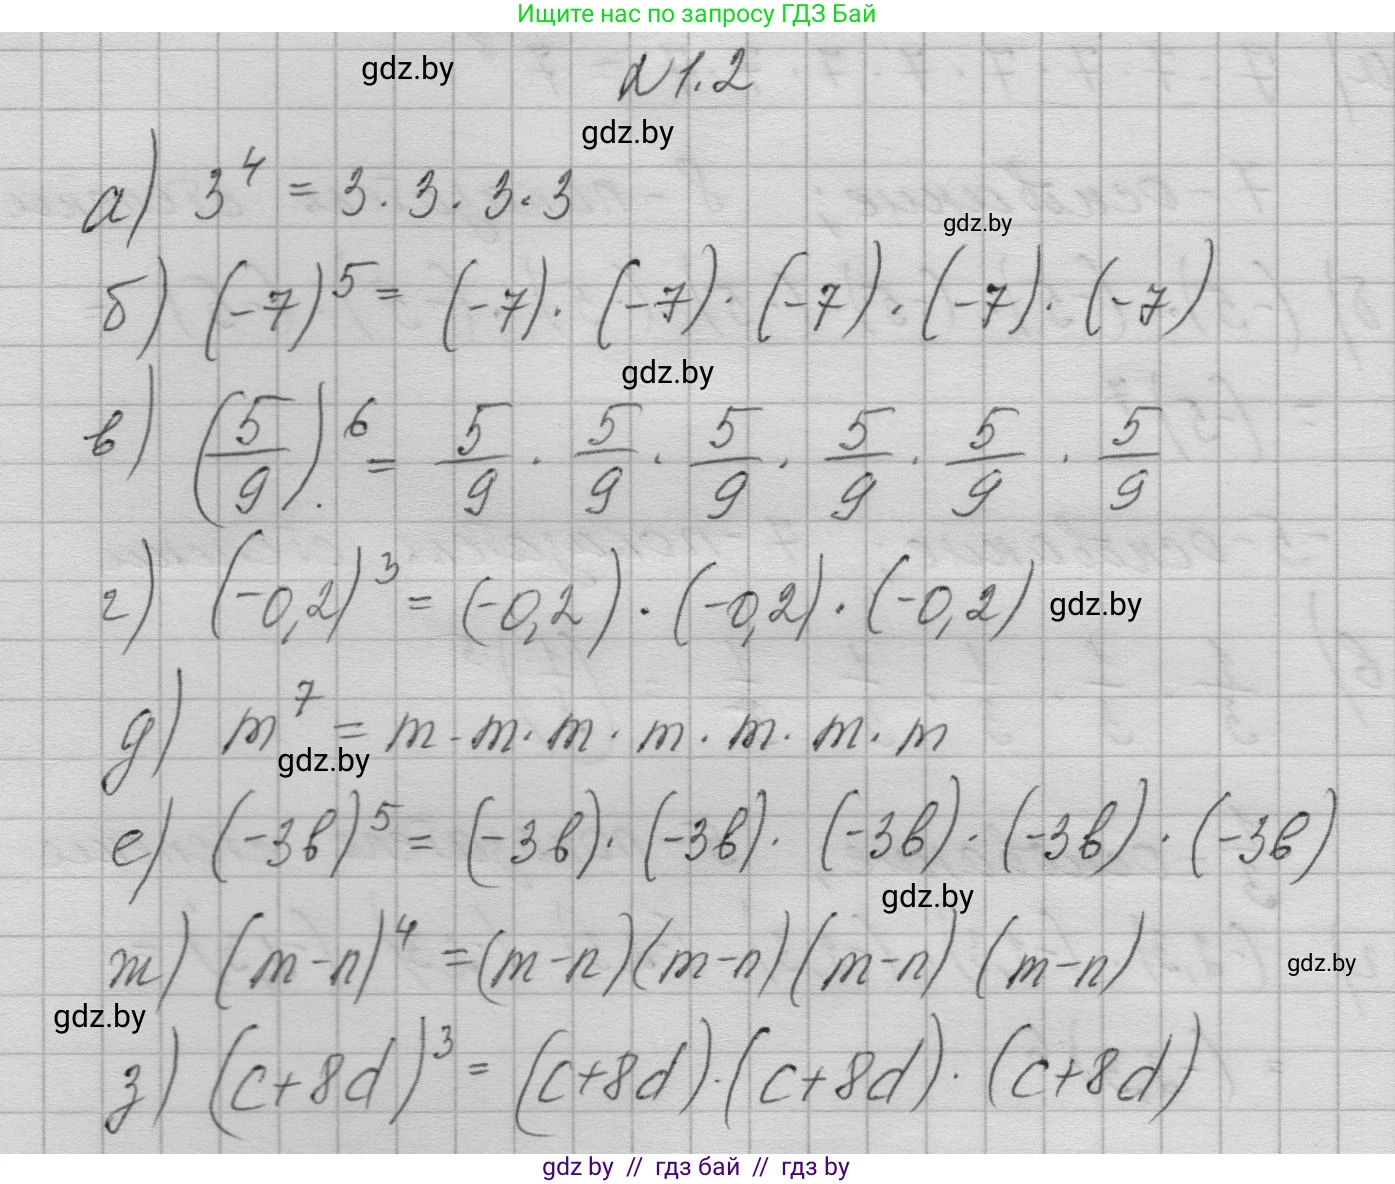 Ищите нас по запросу ГДЗ Бай
gdz.by
№1.2
gdz.by
а) 3⁴ = 3 · 3 · 3 · 3
gdz.by
б) (-7)⁵ = (-7) · (-7) · (-7) · (-7) · (-7)
gdz.by
в) (5/9)⁶ = 5/9 · 5/9 · 5/9 · 5/9 · 5/9 · 5/9
г) (-0,2)³ = (-0,2) · (-0,2) · (-0,2)
gdz.by
д) m⁷ = m · m · m · m · m · m · m
gdz.by
е) (-3в)⁵ = (-3в) · (-3в) · (-3в) · (-3в) · (-3в)
gdz.by
ж) (m-n)⁴ = (m-n)(m-n)(m-n)(m-n)
gdz.by
gdz.by
з) (c+8d)³ = (c+8d) · (c+8d) · (c+8d)
gdz by // гдз бай // гдз by